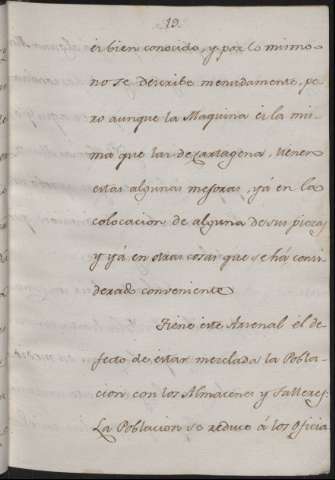 19.
es bien conocido, y por lo mismo
no se describe menudamente, pe
ro aunque la Maquina es la mis
ma que las de Cartagena, tienen
estas algunas mejoras, yá en la
colocacion de alguna de sus piezas
y yá en otras cosas que se há consi
derado conveniente
Tiene este Arsenal el de
fecto de estar mezclada la Pobla-
cion con los Almacenes y Talleres:
La Poblacion se reduce á los Oficia